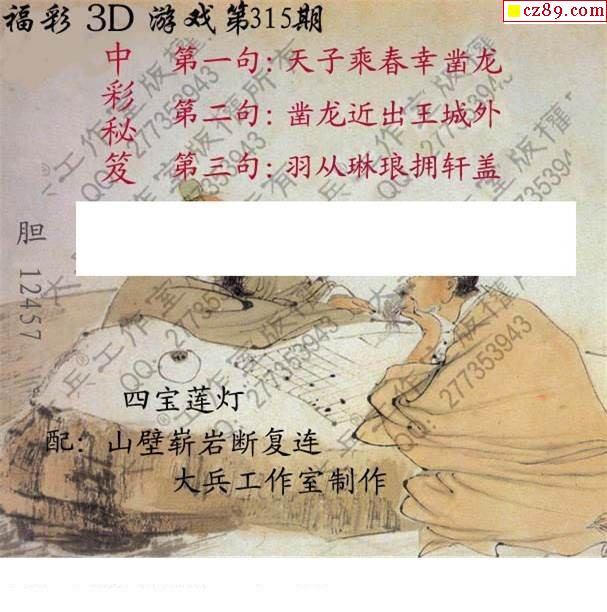 福彩 3D 游戏第315期
cz89.com
中彩秘笈
第一句：天子乘春幸凿龙
第二句：凿龙近出王城外
第三句：羽从琳琅拥轩盖
胆 12457
四宝莲灯
配：山壁崭岩断复连
大兵工作室制作
大兵®工作室版權所有
QQ：277353943